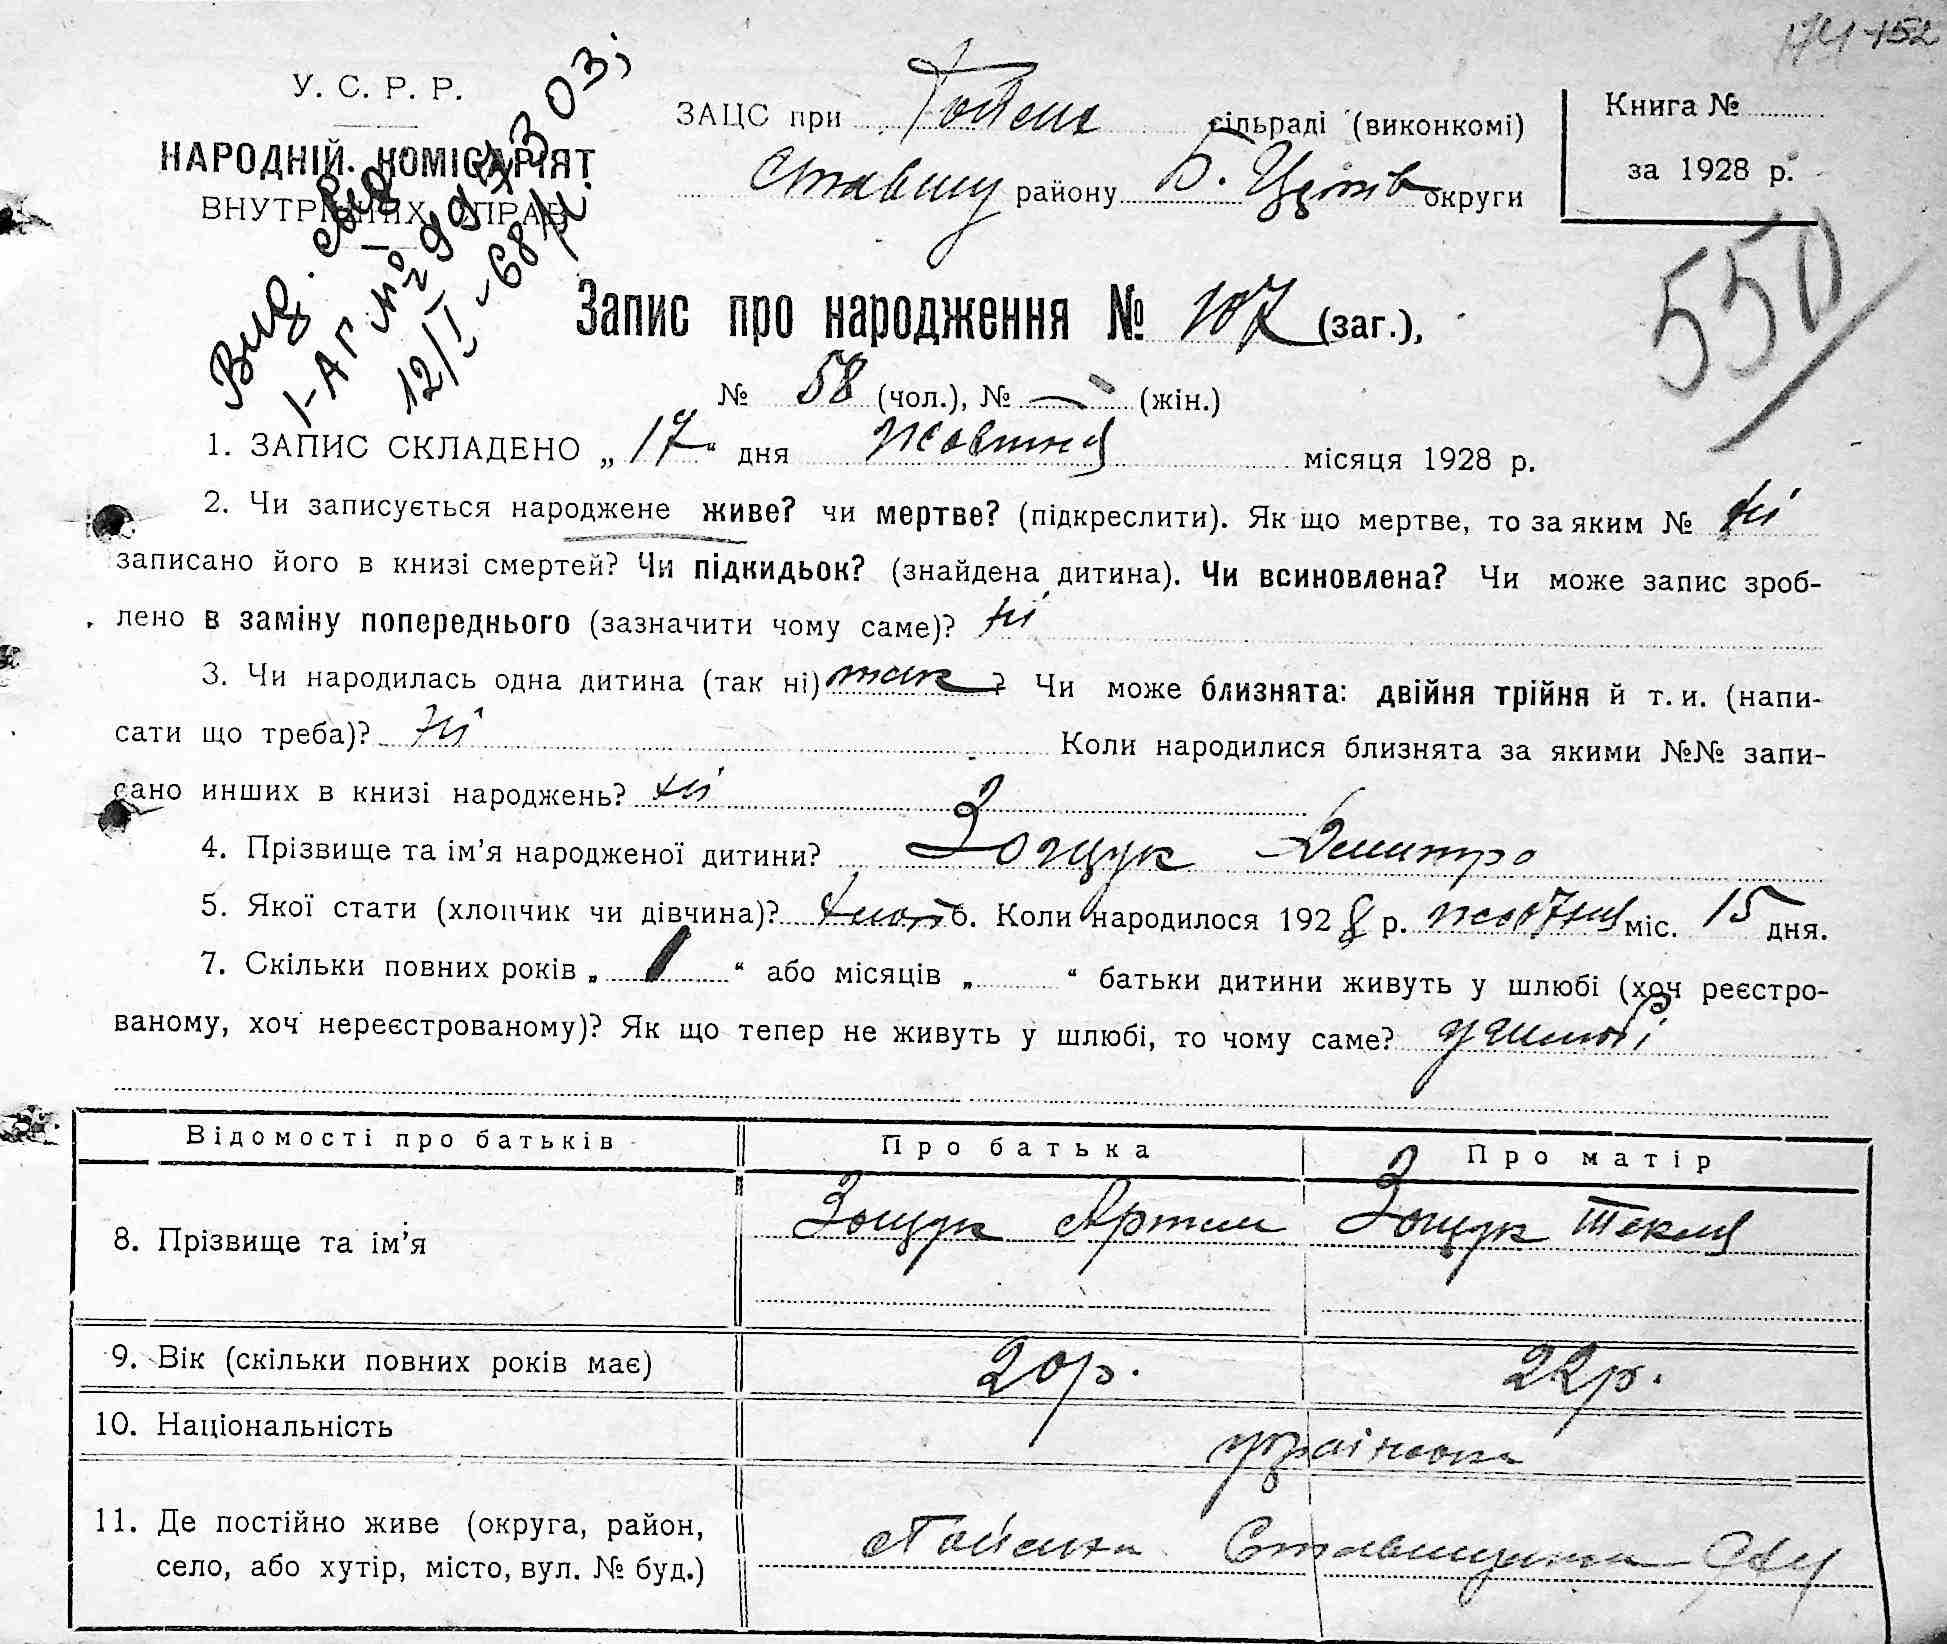 174-152
У. С. Р. Р.
НАРОДНІЙ КОМІСАРІЯТ
ВНУТРІШНІХ СПРАВ
Вид. свид.
І-АГ №
12/I-68 р.
ЗАЦС при сільраді (виконкомі)
Ставищ району Б. Церків округи
Книга №
за 1928 р.
550
Запис про народження № 107 (заг.),
№ 58 (чол.), № — (жін.)
1. ЗАПИС СКЛАДЕНО „ 17 “ дня жовтня місяця 1928 р.
2. Чи записується народжене живе? чи мертве? (підкреслити). Як що мертве, то за яким № ні
записано його в книзі смертей? Чи підкидьок? (знайдена дитина). Чи всиновлена? Чи може запис зроб-
лено в заміну попереднього (зазначити чому саме)? ні
3. Чи народилась одна дитина (так ні) так ? Чи може близнята: двійня трійня й т. и. (напи-
сати що треба)? ні Коли народилися близнята за якими №№ запи-
сано инших в книзі народжень? ні
4. Прізвище та ім’я народженої дитини? Зощук Дмитро
5. Якої стати (хлопчик чи дівчина)? 6. Коли народилося 1928 р. жовтня міс. 15 дня.
7. Скільки повних років „ 1 “ або місяців „ “ батьки дитини живуть у шлюбі (хоч реєстро-
ваному, хоч нереєстрованому)? Як що тепер не живуть у шлюбі, то чому саме? у шлюбі
Відомості про батьків Про батька Про матір
8. Прізвище та ім’я Зощук Артем Зощук Текля
9. Вік (скільки повних років має) 20 р. 22 р.
10. Національність українська
11. Де постійно живе (округа, район,
село, або хутір, місто, вул. № буд.)